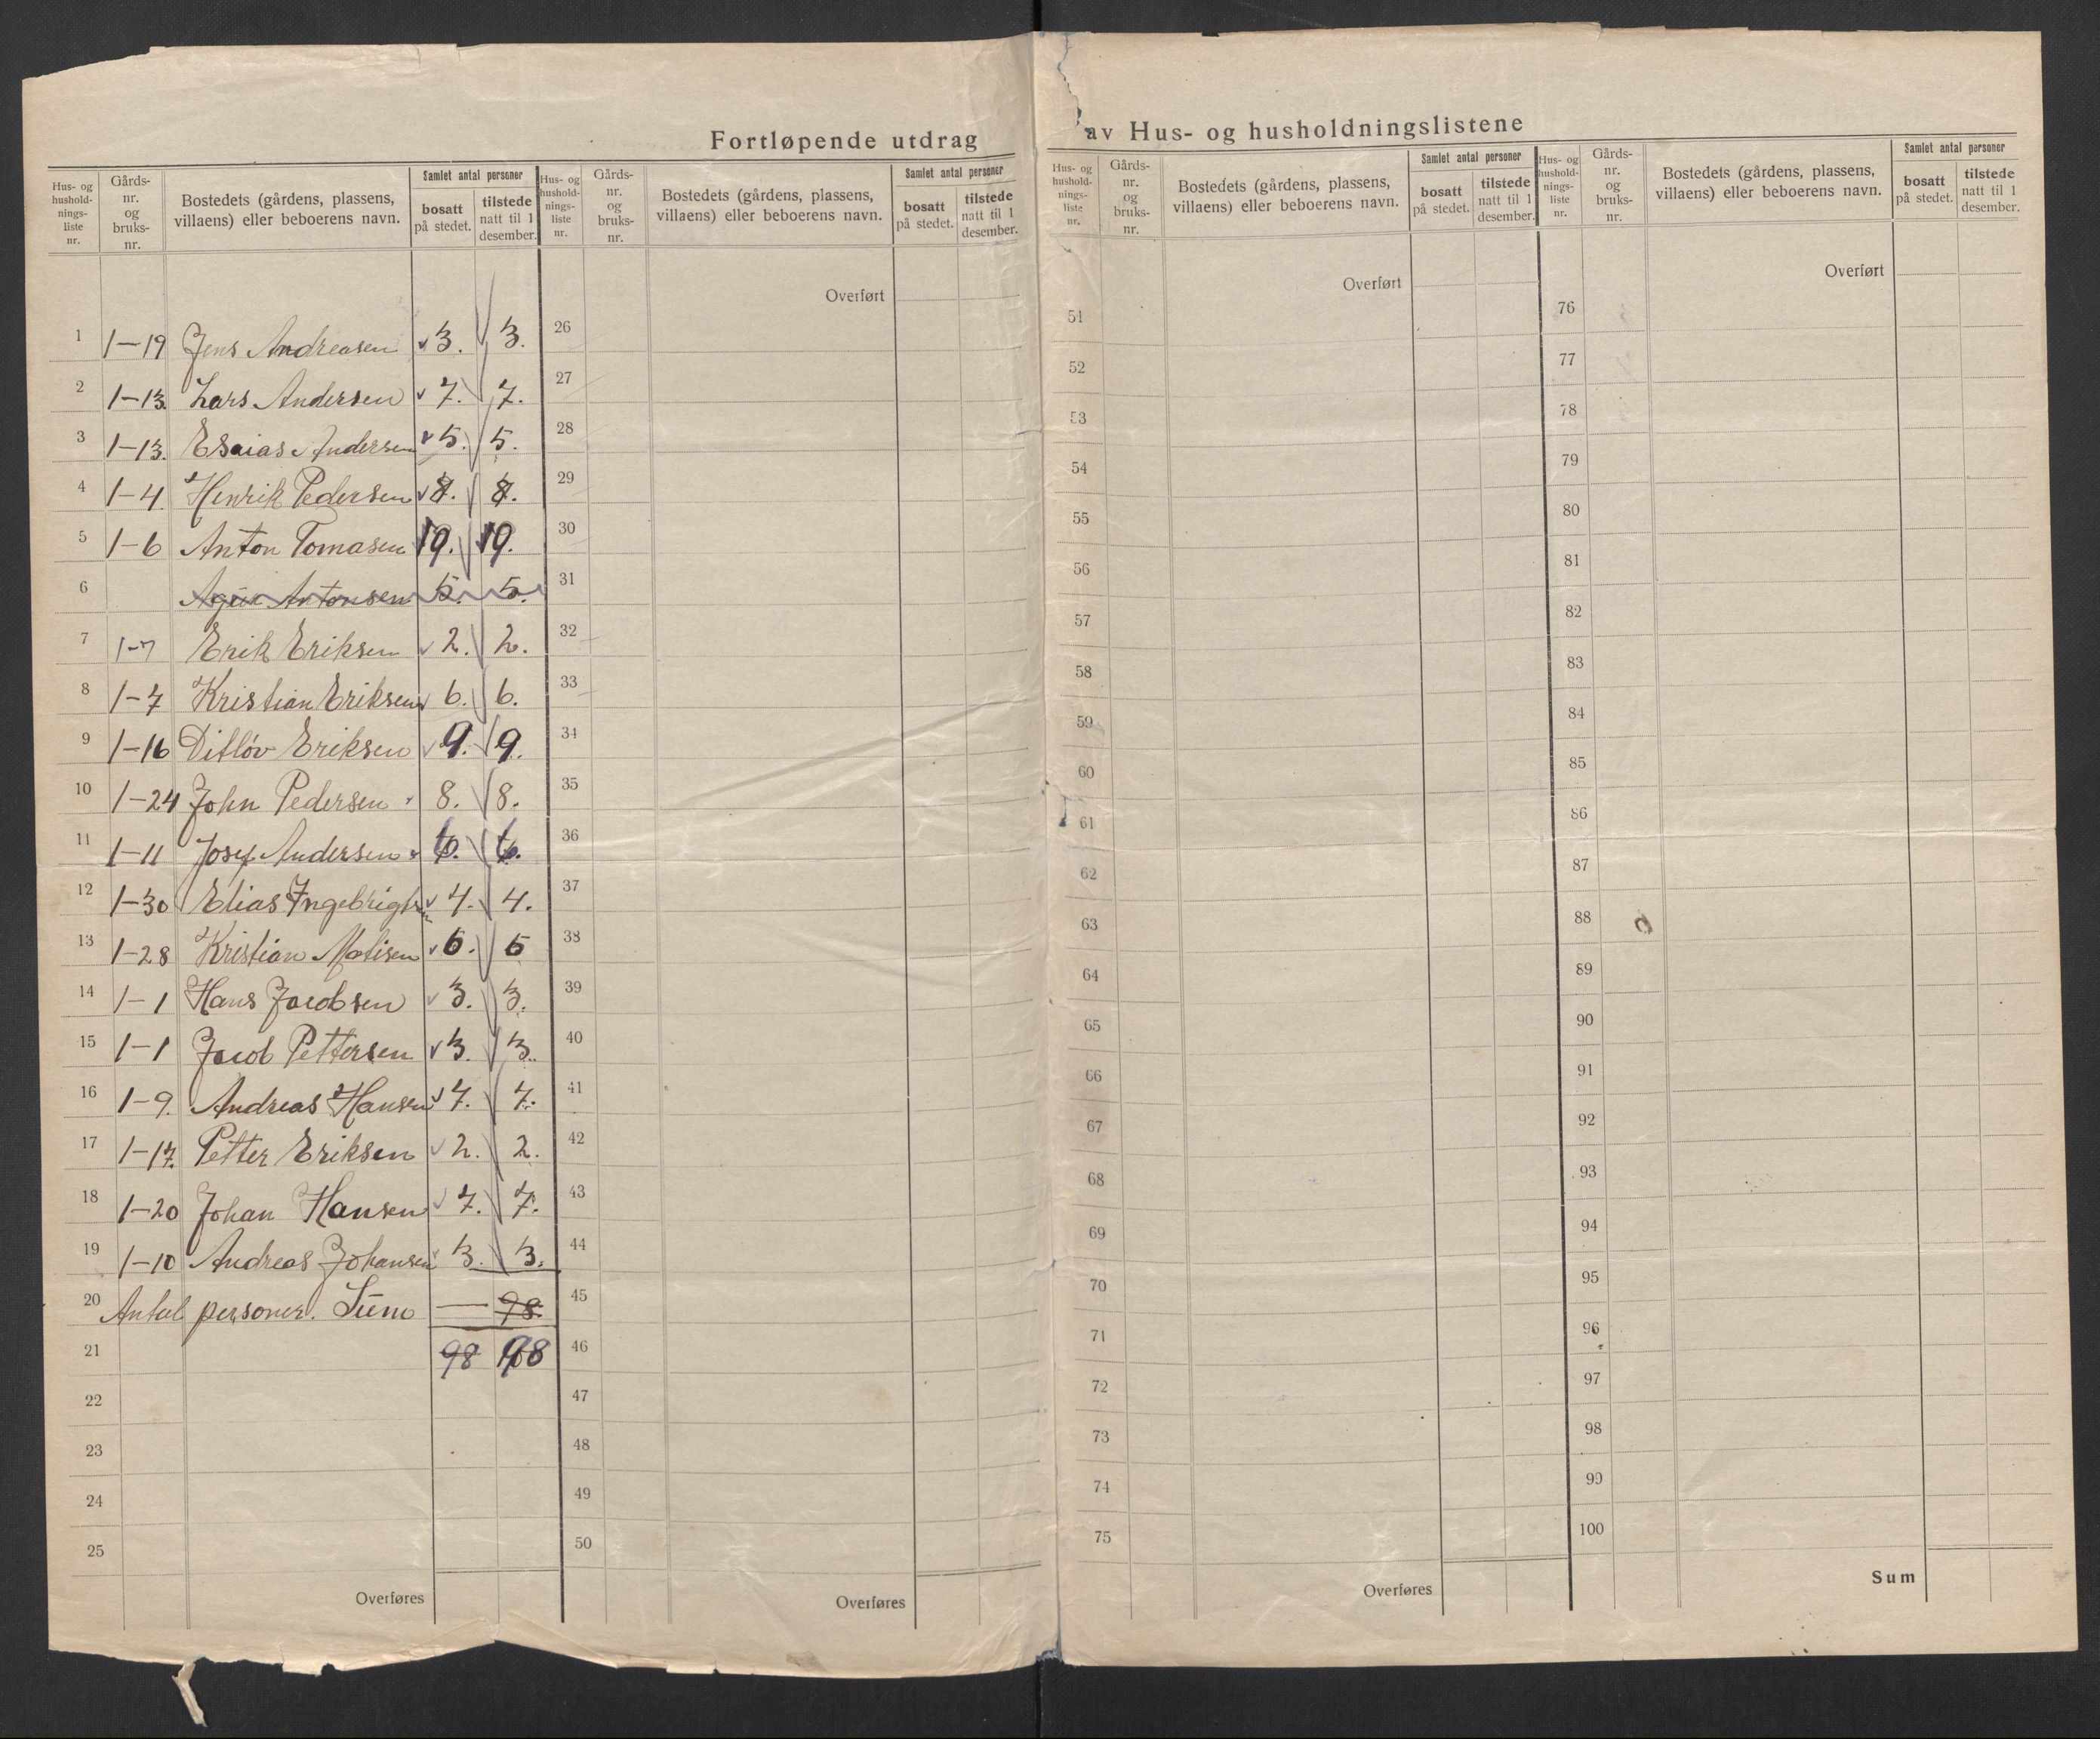 Fortløpende utdrag av Hus- og husholdningslistene
Hus- og hushold-nings-liste nr. Gårds-nr. og bruks-nr. Bostedets (gårdens, plassens, villaens) eller beboerens navn. Samlet antal personer bosatt på stedet. tilstede natt til 1 desember.
1 1-19 Jens Andreasen 3. 3.
2 1-13. Lars Andersen 7. 7.
3 1-13. Esaias Andersen 5. 5.
4 1-4. Henrik Pedersen 8. 8.
5 1-6 Anton Tomasen 9. 9.
6 Antonsen 5. 5.
7 1-7 Erik Eriksen 2. 2.
8 1-7 Kristian Eriksen 6. 6.
9 1-16 Ditløv Eriksen 9. 9.
10 1-24 John Pedersen 8. 8.
11 1-11 Josef Andersen 6. 6.
12 1-30 Elias Ingebrigtsen 4. 4.
13 1-28 Kristian Matisen 6. 6
14 1-1 Hans Jacobsen 3. 3.
15 1-1 Jacob Pettersen 3. 3.
16 1-9. Andreas Hansen 7. 7.
17 1-17. Petter Eriksen 2. 2.
18 1-20 Johan Hansen 7. 7.
19 1-10 Andreas Johansen 3. 3.
20 Antal personer. Sum — 98.
21 98 98
22
23
24
25
Overføres
Hus- og hushold-nings-liste nr. Gårds-nr. og bruks-nr. Bostedets (gårdens, plassens, villaens) eller beboerens navn. Samlet antal personer bosatt på stedet. tilstede natt til 1 desember.
Overført
26
27
28
29
30
31
32
33
34
35
36
37
38
39
40
41
42
43
44
45
46
47
48
49
50
Overføres
Hus- og hushold-nings-liste nr. Gårds-nr. og bruks-nr. Bostedets (gårdens, plassens, villaens) eller beboerens navn. Samlet antal personer bosatt på stedet. tilstede natt til 1 desember.
Overført
51
52
53
54
55
56
57
58
59
60
61
62
63
64
65
66
67
68
69
70
71
72
73
74
75
Overføres
Hus- og hushold-nings-liste nr. Gårds-nr. og bruks-nr. Bostedets (gårdens, plassens, villaens) eller beboerens navn. Samlet antal personer bosatt på stedet. tilstede natt til 1 desember.
Overført
76
77
78
79
80
81
82
83
84
85
86
87
88
89
90
91
92
93
94
95
96
97
98
99
100
Sum